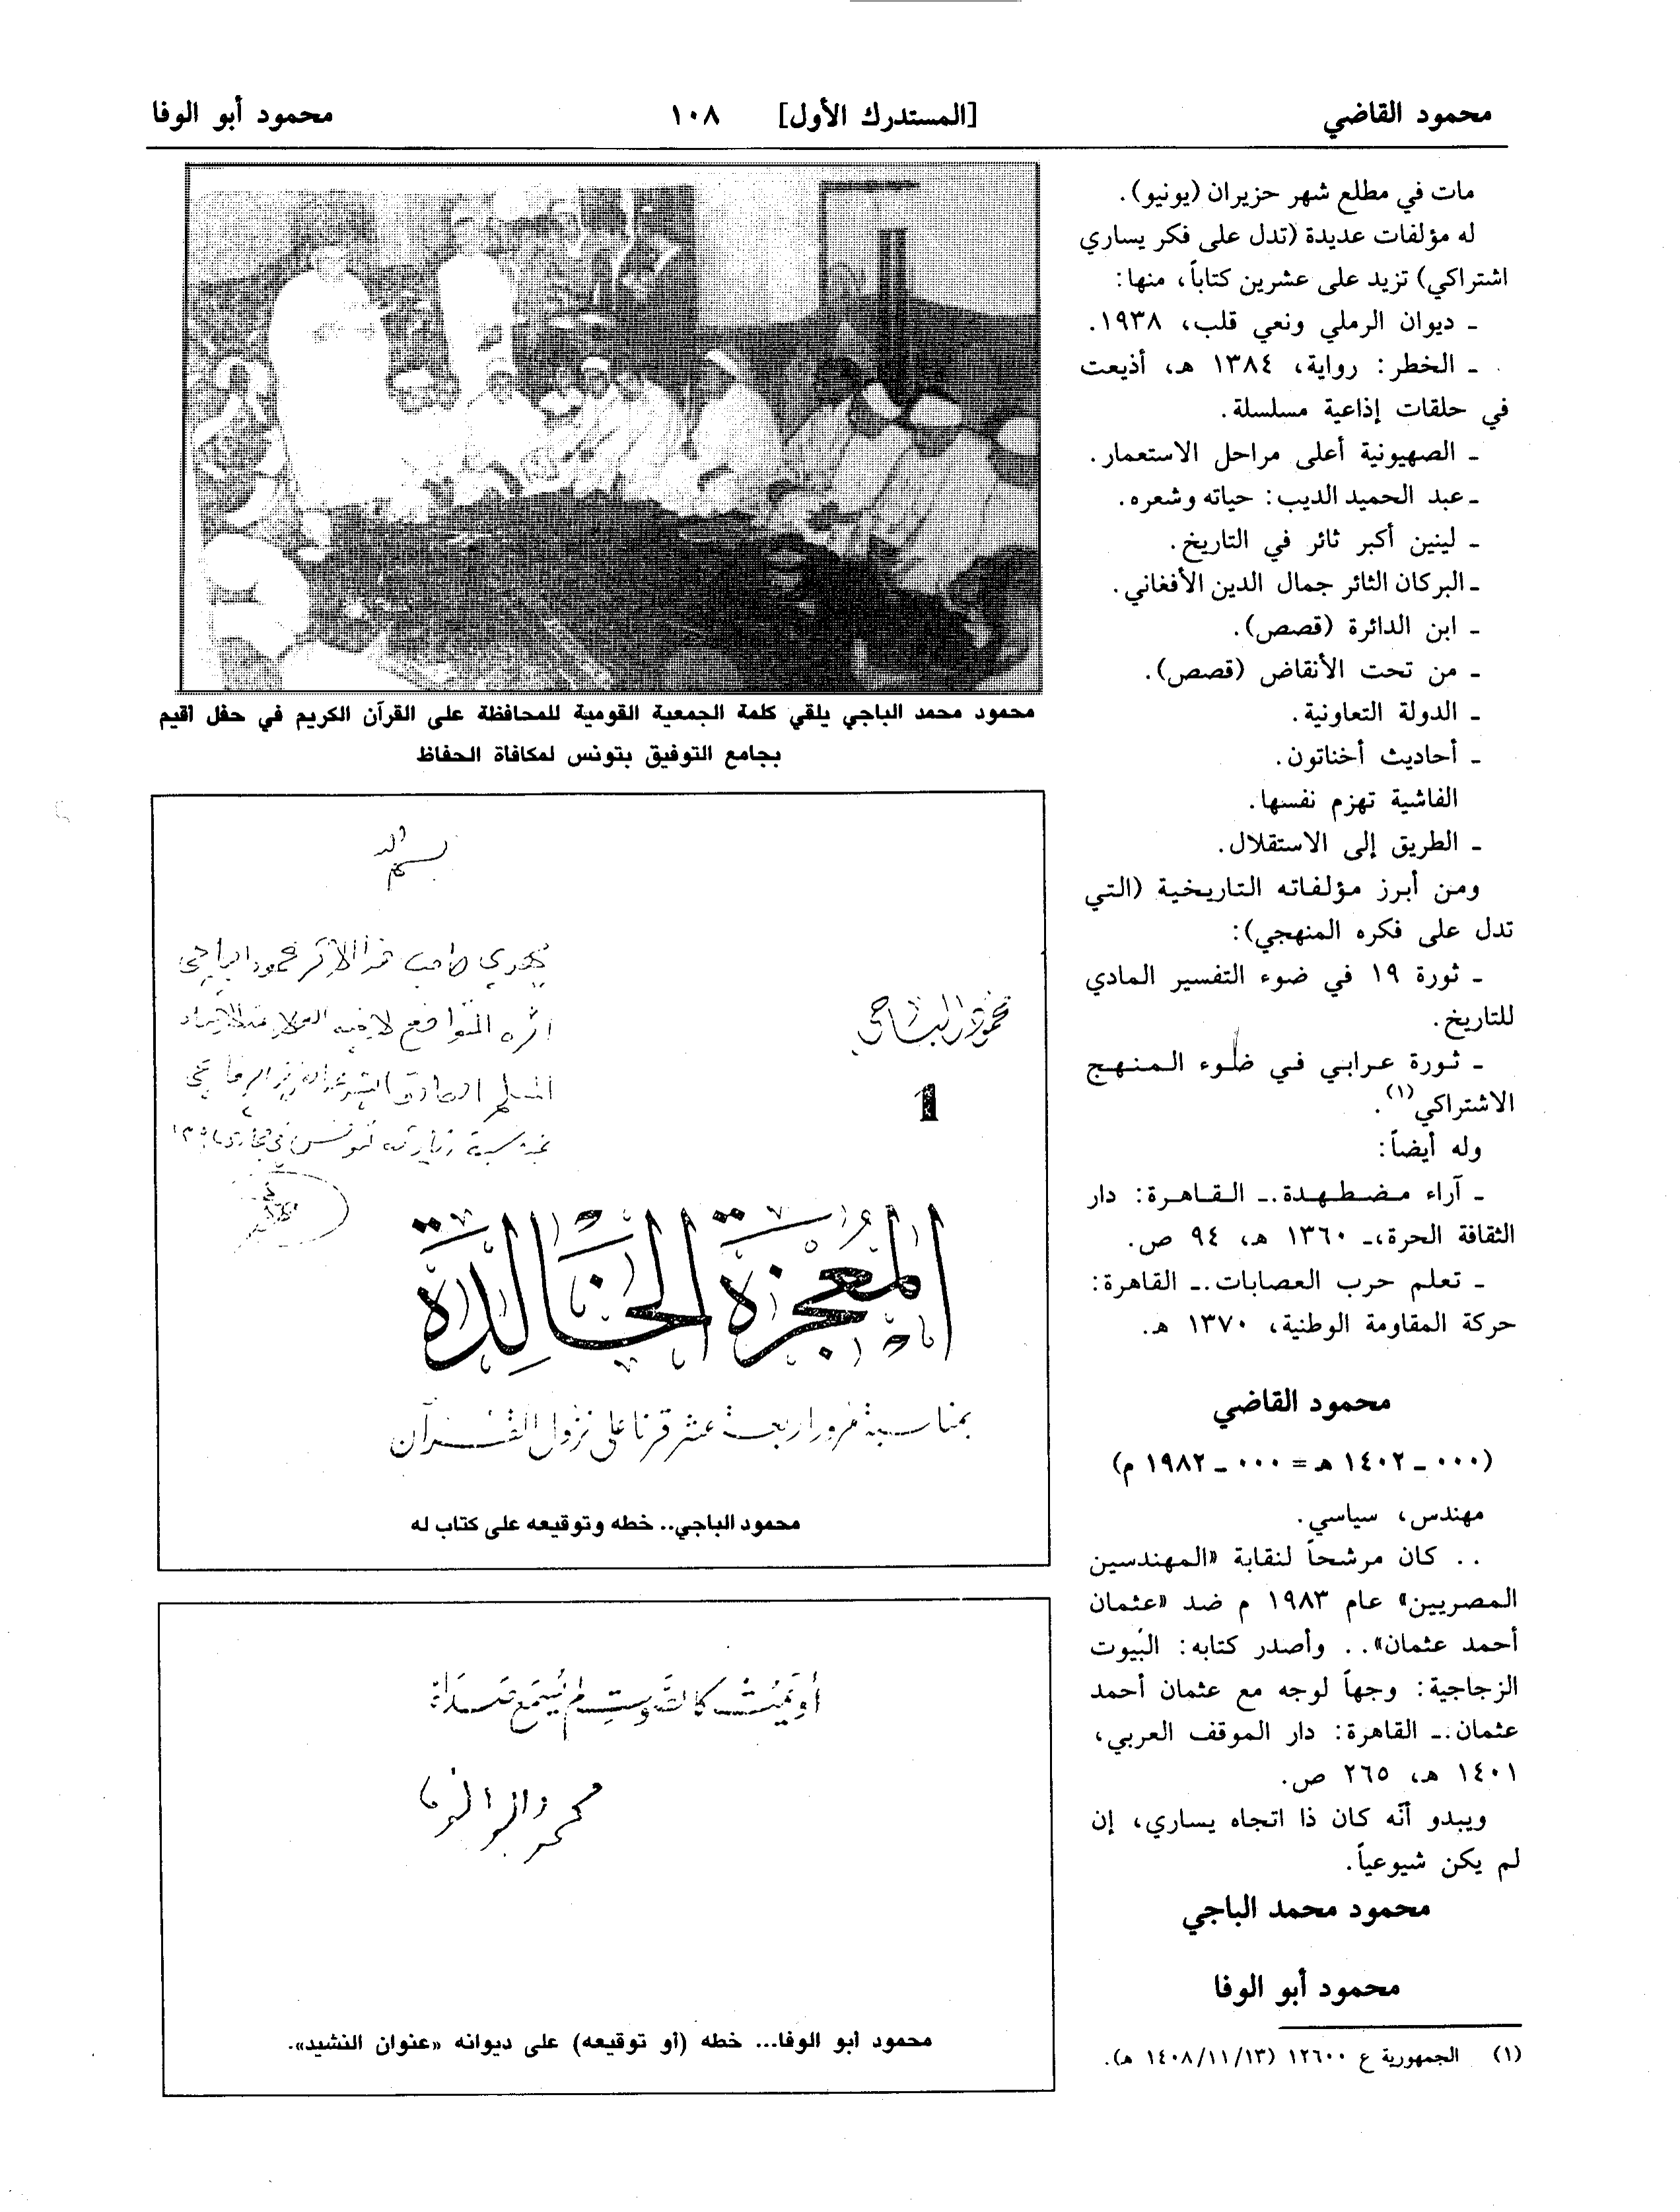 محمود القاضي [المستدرك الأول] ١٠٨ محمود أبو الوفا
مات في مطلع شهر حزيران (يونيو).
له مؤلفات عديدة (تدل على فكر يساري
اشتراكي) تزيد على عشرين كتاباً، منها:
ـ ديوان الرملي ونعي قلب، ١٩٣٨.
ـ الخطر: رواية، ١٣٨٤ هـ، أذيعت
في حلقات إذاعية مسلسلة.
ـ الصهيونية أعلى مراحل الاستعمار.
ـ عبد الحميد الديب: حياته وشعره.
ـ لينين أكبر ثائر في التاريخ.
ـ البركان الثائر جمال الدين الأفغاني.
ـ ابن الدائرة (قصص).
ـ من تحت الأنقاض (قصص).
ـ الدولة التعاونية.
ـ أحاديث أخناتون.
الفاشية تهزم نفسها.
ـ الطريق إلى الاستقلال.
ومن أبرز مؤلفاته التاريخية (التي
تدل على فكره المنهجي):
ـ ثورة ١٩ في ضوء التفسير المادي
للتاريخ.
ـ ثورة عرابي في ضوء المنهج
الاشتراكي(١).
وله أيضاً:
ـ آراء مضطهدة.ـ القاهرة: دار
الثقافة الحرة،ـ ١٣٦٠ هـ، ٩٤ ص.
ـ تعلم حرب العصابات.ـ القاهرة:
حركة المقاومة الوطنية، ١٣٧٠ هـ.
محمود القاضي
(٠٠٠ ـ ١٤٠٢ هـ = ٠٠٠ ـ ١٩٨٢ م)
مهندس، سياسي.
.. كان مرشحاً لنقابة «المهندسين
المصريين» عام ١٩٨٣ م ضد «عثمان
أحمد عثمان».. وأصدر كتابه: البيوت
الزجاجية: وجهاً لوجه مع عثمان أحمد
عثمان.ـ القاهرة: دار الموقف العربي،
١٤٠١ هـ، ٢٦٥ ص.
ويبدو أنّه كان ذا اتجاه يساري، إن
لم يكن شيوعياً.
محمود محمد الباجي
محمود أبو الوفا
(١) الجمهورية ع ١٢٦٠٠ (١٤٠٨/١١/١٣ هـ).
محمود محمد الباجي يلقي كلمة الجمعية القومية للمحافظة على القرآن الكريم في حفل أقيم
بجامع التوفيق بتونس لمكافأة الحفاظ
يهدي صاحب هذا الأثر محمود الباجي
أثره المتواضع لأخيه
محمود الباجي
1
المعجزة الخالدة
بمناسبة مرور أربعة عشر قرنا على نزول القرآن
محمود الباجي.. خطه وتوقيعه على كتاب له
محمود أبو الوفا
محمود أبو الوفا... خطه (أو توقيعه) على ديوانه «عنوان النشيد».